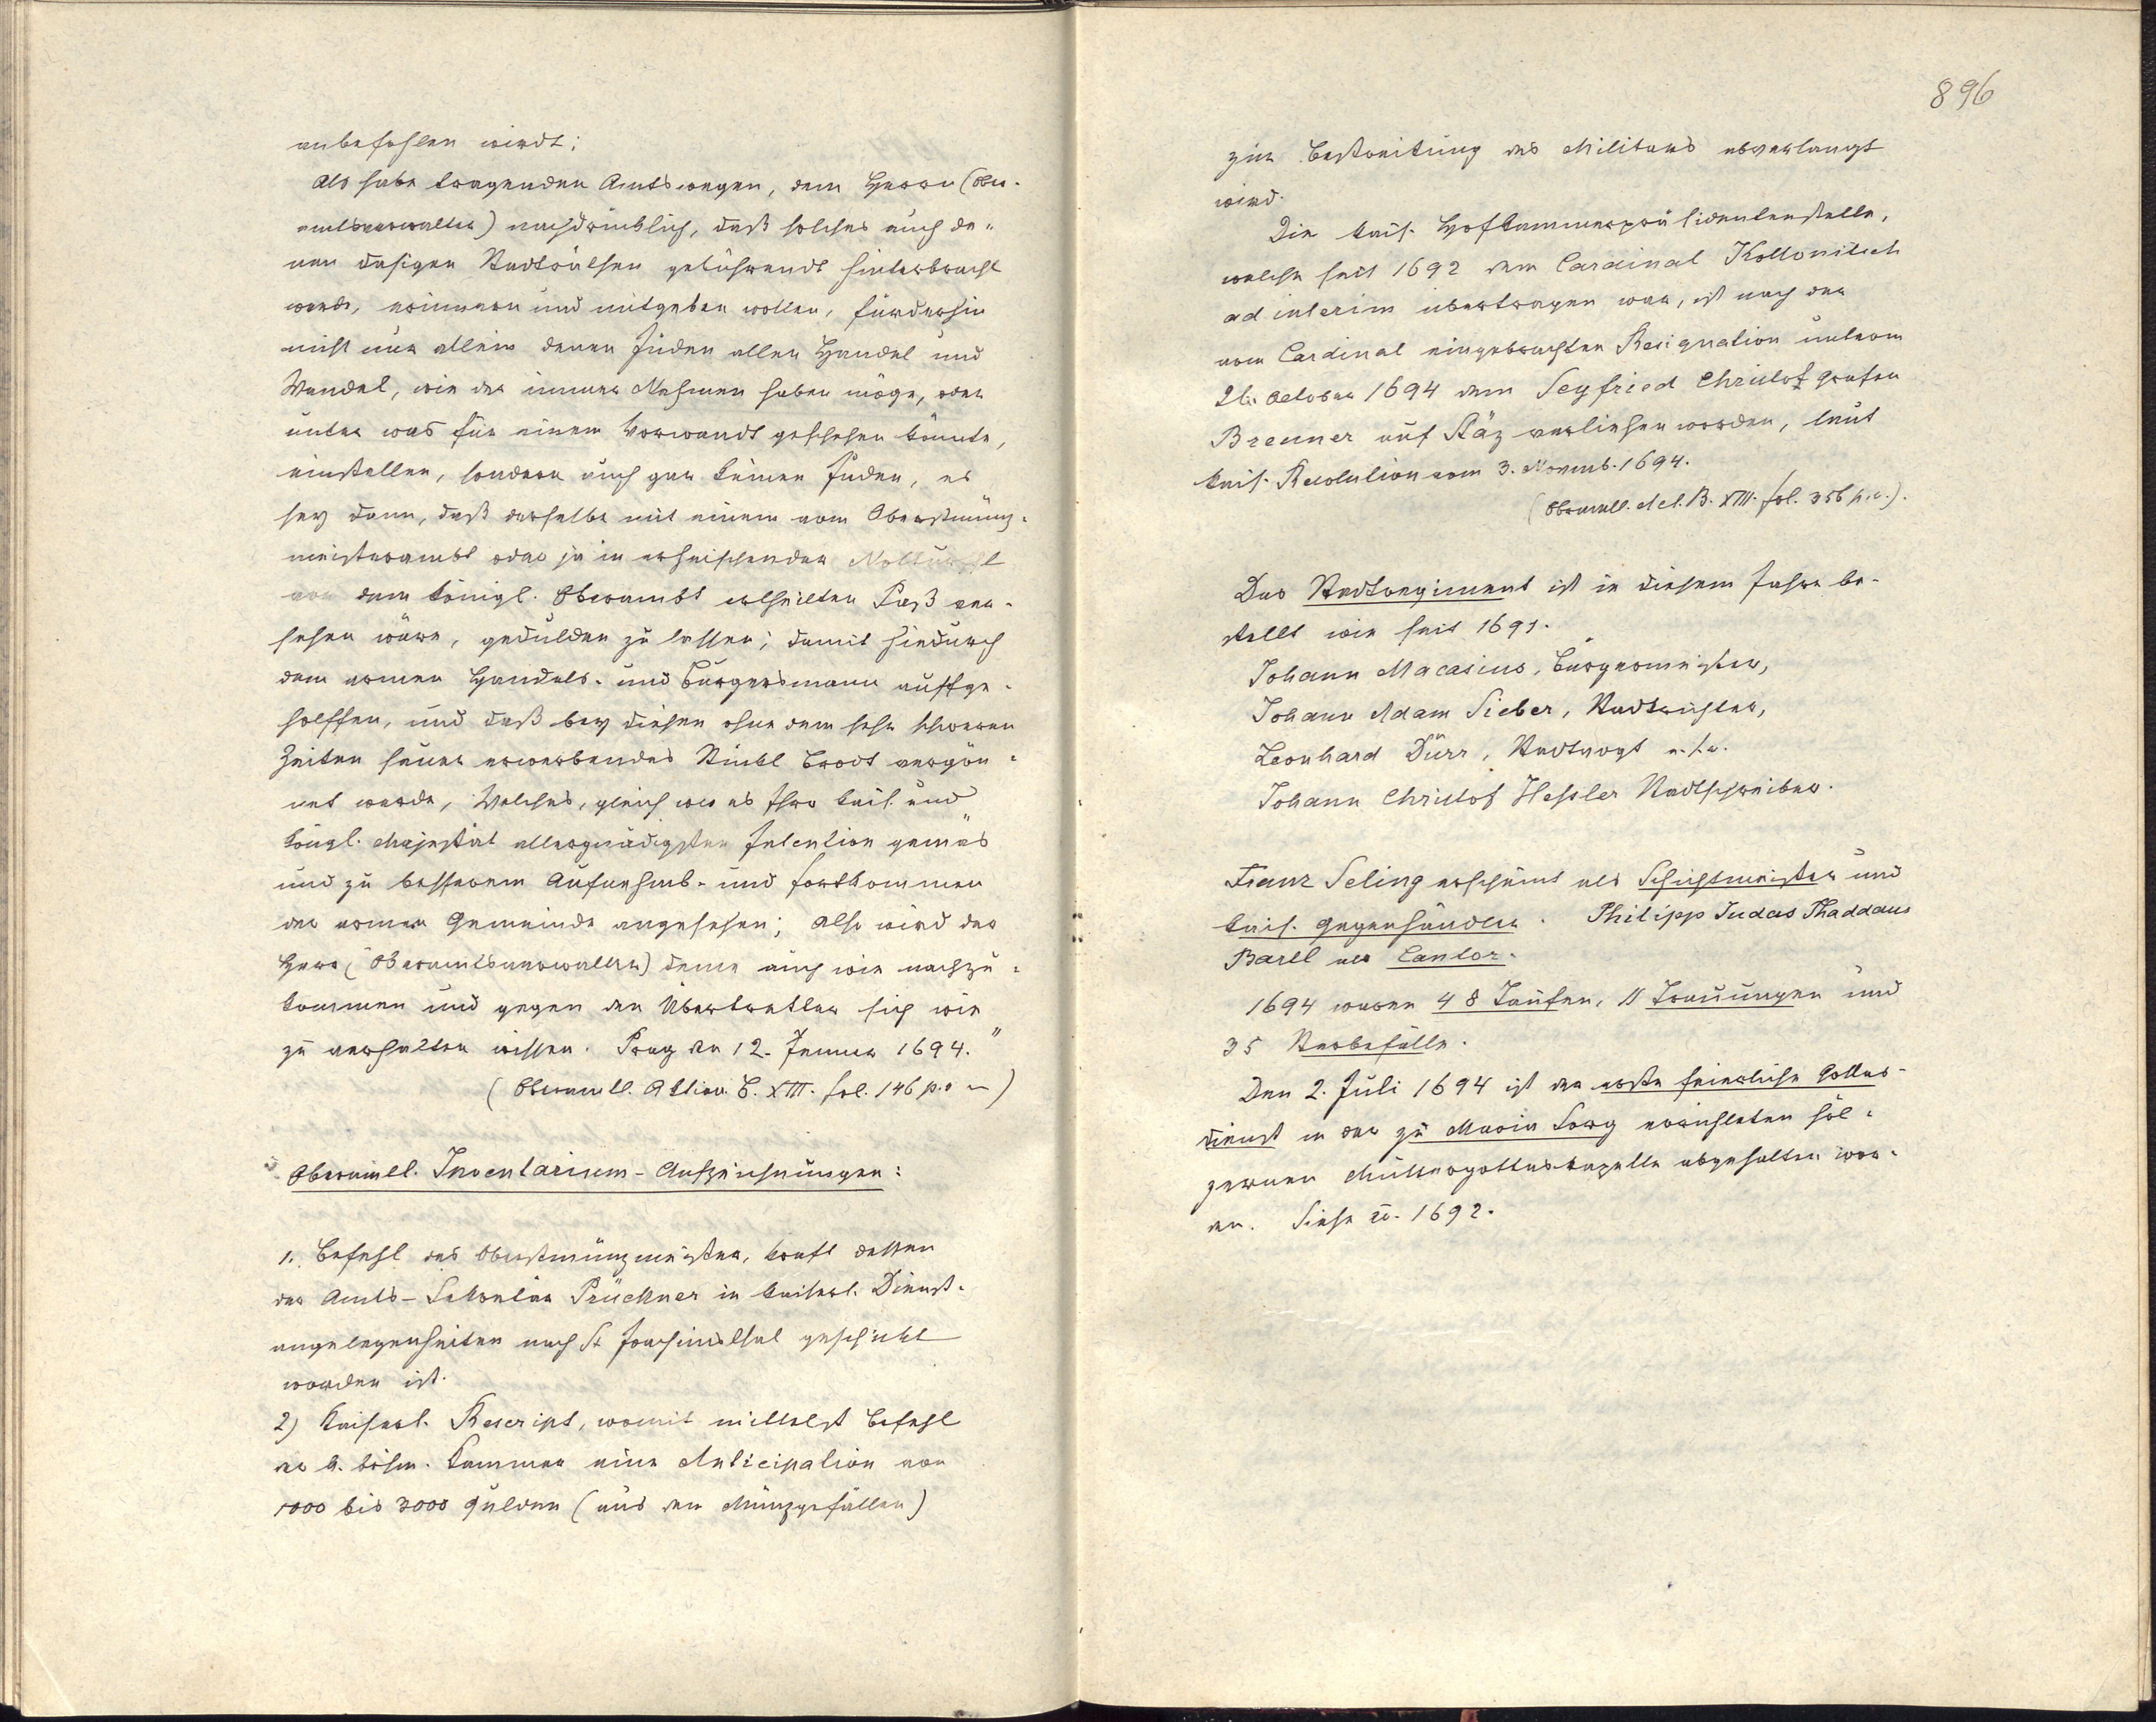 anbefohlen wirdt;
Als habe tragenden Amtswegen, dem Herrn (Ober-
amtsverwalter) nachdrücklich, daß solches auch de-
nen dasigen Stadträthen gebührendt hinterbracht
werde, erinnern und mitgeben wollen, fürderhin
nicht nur allein denen Juden allen Handel und
Wandel, wie der immer Nahmen haben möge, oder
unter was für einem Vorwandt geschehen könnte,
einstellen, sondern auch gar keinen Juden, es
sey dann, daß derselbe mit einem vom Oberstmünz-
meisterambt oder ja in erheischender Notturfft
von dem königl. Oberambt ertheilten Paß ver-
sehen wäre, gedulden zu lassen; damit hiedurch
dem armen Handels- und Burgersmann auffge-
holffen, und daß bey diesen ohne dem sehr schweren
Zeiten sauer erwerbendes Stückl Brodt vergön-
net werde, Welches, gleich wie es Ihro kais. und
königl. Majestät allergnädigsten Intention gemäs
und zu besserem Aufnehmb- und Fortkommen
der armen Gemeinde angesehen; Also wird der
Herr (Oberamtsverwalter) deme auch wie nachzu-
kommen und gegen den Übertretter sich wie
zu verhalten wissen. Prag den 12. Januar 1694."
(Oberamtl. Aktion. B. XIII. fol. 146 p. v)
Oberamtl. Inventarium-Aufzeichnungen:
1. Befehl des Oberstmünzmeister, kraft dessen
der Amts-Sekretär Prückner in kaiserl. Dienst-
angelegenheiten nach St Joachimsthal geschickt
worden ist.
2) Kaiserl. Rescript, womit mittelst Befehl
der k. böhm. Kammer eine Anticipation von
1000 bis 3000 Gulden (aus den Münzgefällen)
896
zur Bestreitung des Militärs abverlangt
wird.
Die kais. Hofkammerpräsidentenstelle,
welche seit 1692 dem Cardinal Kollonitsch
ad interim übertragen war, ist nach der
vom Cardinal eingebrachten Resignation unterm
26. October 1694 dem Seyfried Christof Grafen
Breuner auf Stäz verliehen worden, laut
kais. Resolution vom 3. Novemb. 1694.
(Oberamtl. Act. B. XIII. fol. 356 p. v.).
Das Stadtregiment ist in diesem Jahre be-
stellt wie seit 1691.
Johann Macasius, Bürgermeister,
Johann Adam Sieber, Stadtrichter,
Leonhard Dürr, Stadtvogt u. s. w.
Johann Christof Hessler Stadtschreiber.
Franz Seling erscheint als Schichtmeister und
kais. Gegenhändler. Philipp Judas Thaddäus
Bartl als Cantor.
1694 waren 48 Taufen, 11 Trauungen und
35 Sterbefälle.
Den 2. Juli 1694 ist der erste feierliche Gottes-
dienst in der zu Maria Sorg errichteten höl-
zernen Muttergotteskapelle abgehalten wor-
den. Siehe a. 1692.